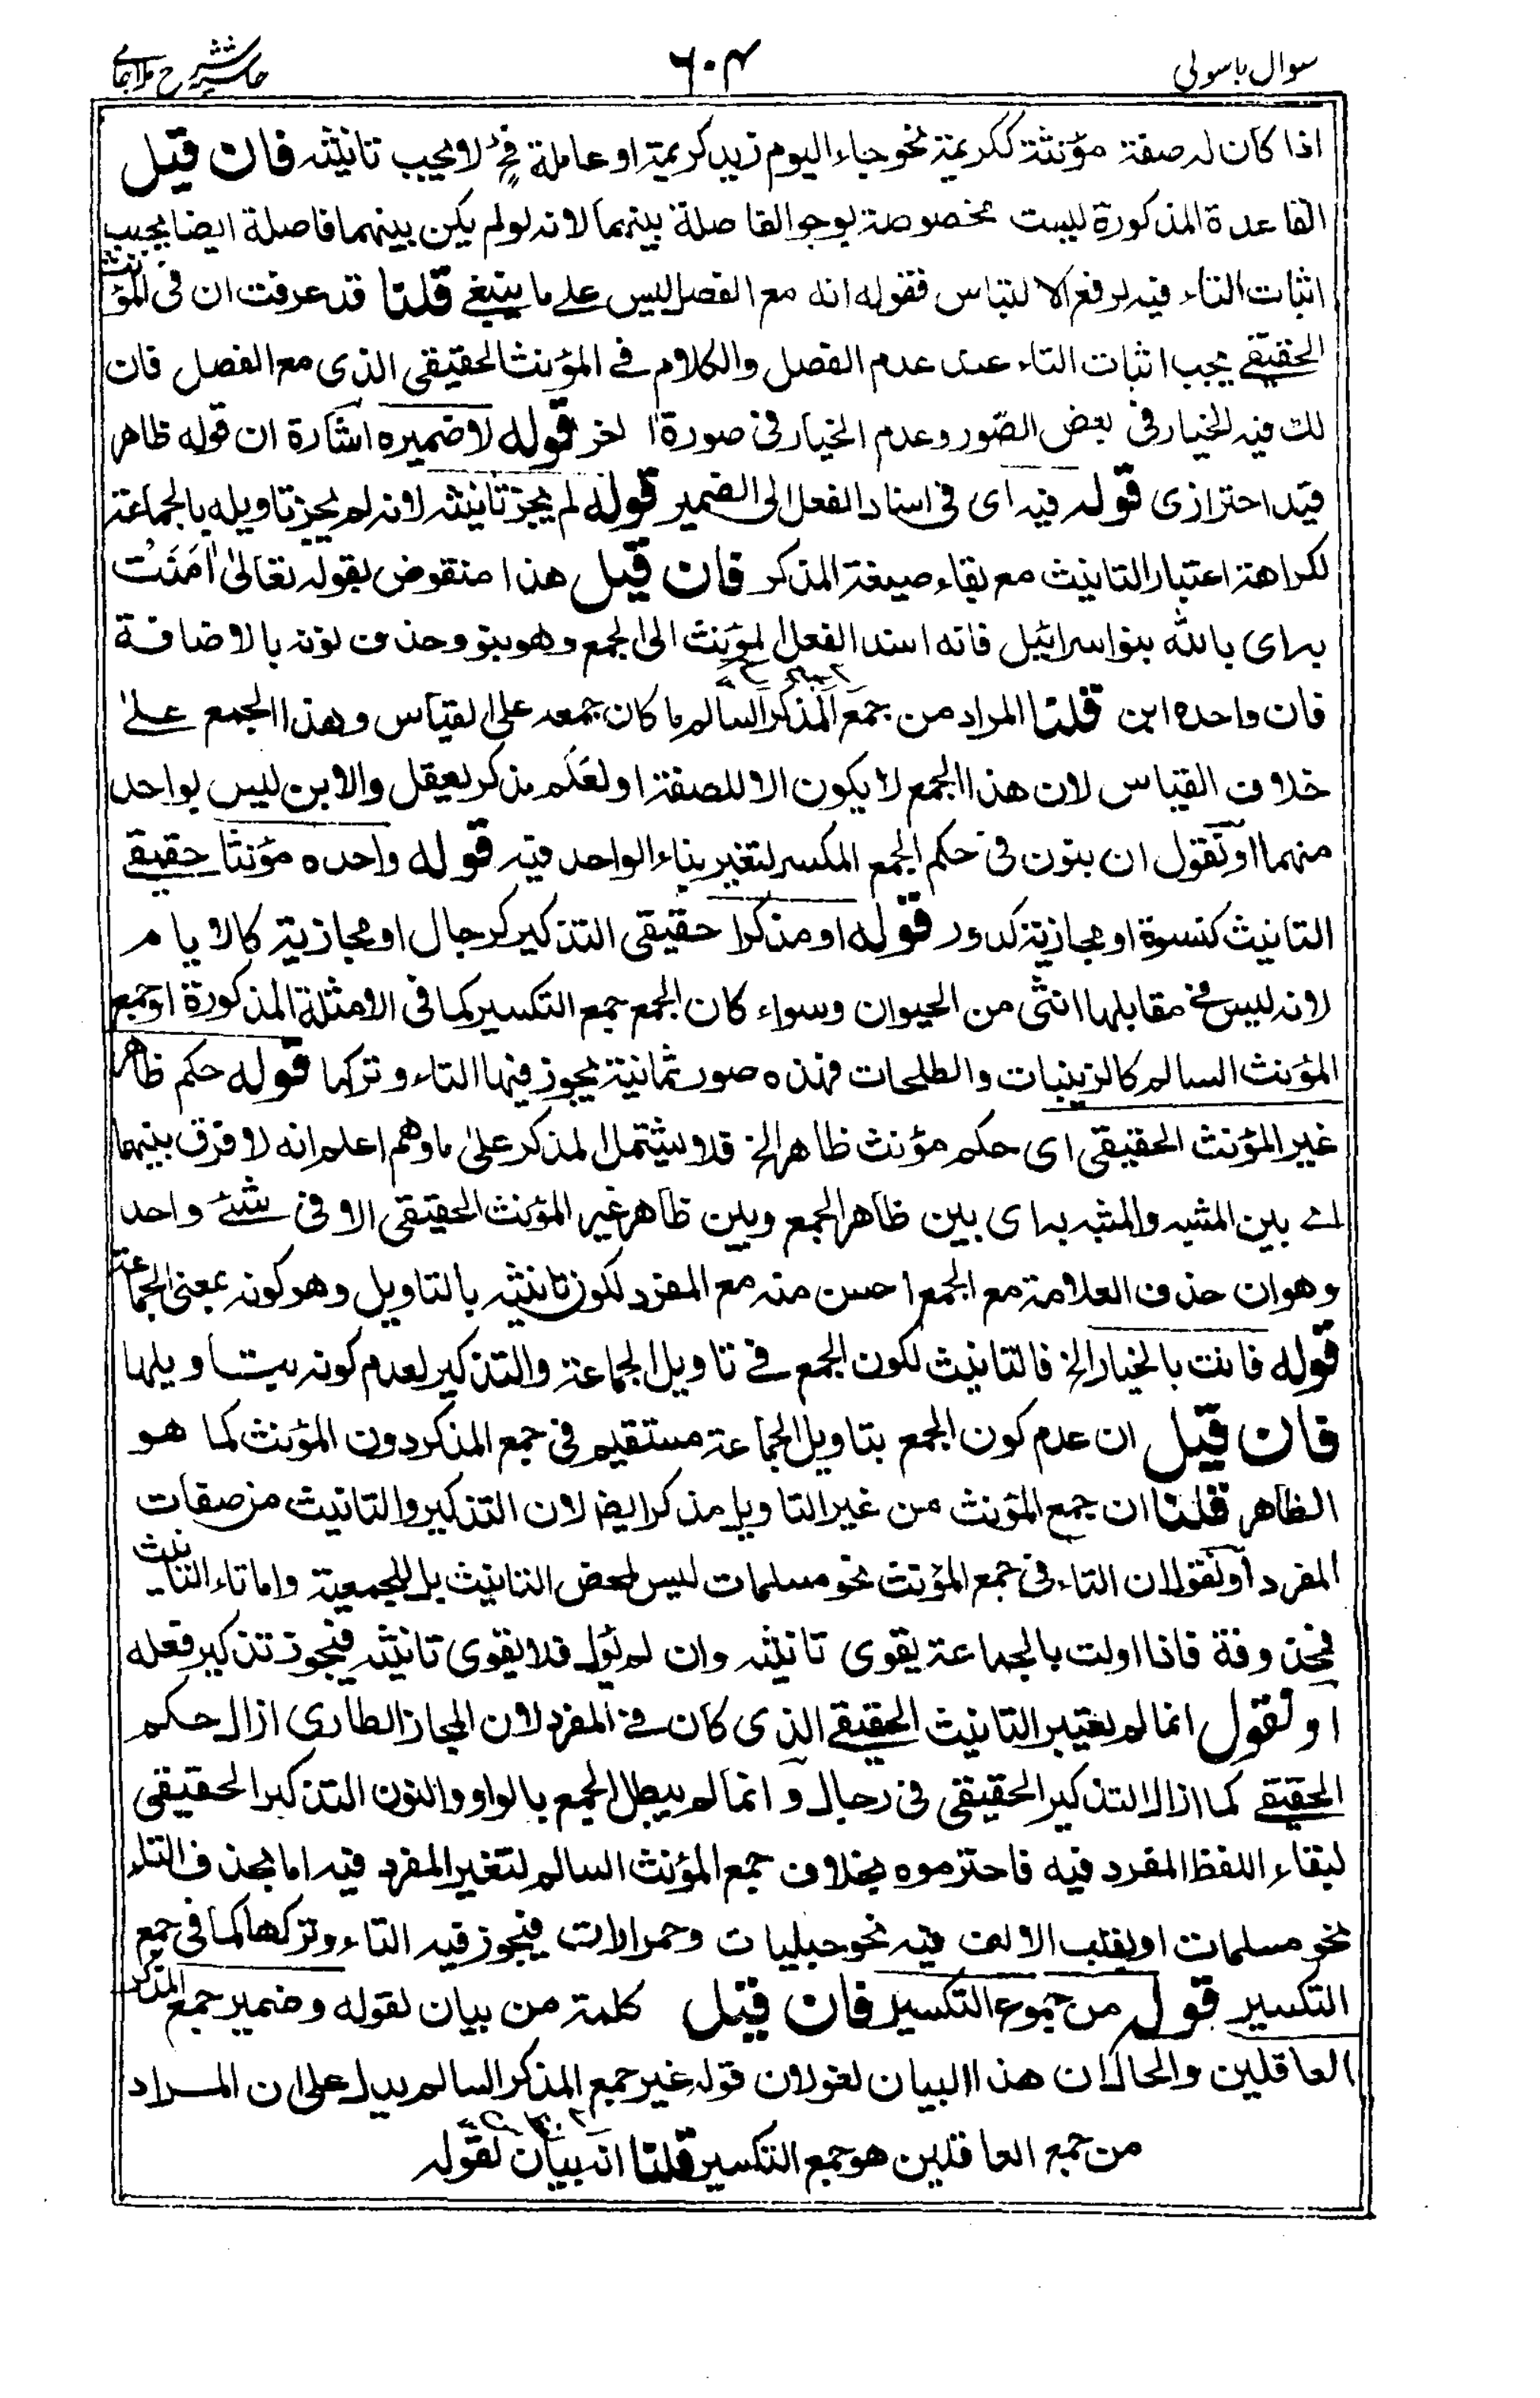 سوال باسولی ٦٠٤ حاشیہ شرح ملا جامی
اذا كان له صفة مؤنثة ككريمة نحو جاء اليوم زيد كريمة او عاملة فح لا يجب تانيثه فان قيل
القاعدة المذكورة ليست مخصوصة بوجو الفاصلة بينهما لانه لو لم يكن بينهما فاصلة ايضا يجب
اثبات التاء فيه لرفع الالتباس فقوله انه مع الفصل ليس على ما ينبغي قلنا قد عرفت ان فى المؤنث
الحقيقے يجب اثبات التاء عند عدم الفصل والكلام فے المؤنث الحقيقى الذى مع الفصل فان
لك فيه الخيار فى بعض الصور وعدم الخيار فى صورة اخر قوله لا ضميره اشارة ان قوله ظاهر
قيد احترازى قوله فيه اى فى اسناد الفعل الى الضمير قوله لم يجز تانيثه لانه لم يجز تاويله بالجماعة
لكراهة اعتبار التانيث مع بقاء صيغة المذكر فان قيل هذا منقوض بقوله تعالىٰ اٰمَنَتْ
به اى بالله بنو اسرائيل فانه اسند الفعل المؤنث الى الجمع وهو بنو وحذف نونه بالاضافة
فان واحده ابن قلنا المراد من جمع المذكر السالم ما كان جمعه على القياس وهذا الجمع علےٰ
خلاف القياس لان هذا الجمع لا يكون الا للصفة او لعَلَم مذكر يعقل والابن ليس بواحد
منهما او نقول ان بنون فى حكم الجمع المكسر لتغير بناء الواحد فيه قوله واحده مؤنثا حقيقے
التانيث كنسوة او مجازية كدور قوله او مذكرا حقيقى التذكير كرجال او مجازية كالايام
لانه ليس فے مقابلها انثى من الحيوان وسواء كان الجمع جمع التكسير كما فى الامثلة المذكورة او جمع
المؤنث السالم كالزينبات والطلحات فهذه صور ثمانية يجوز فيها التاء وتركها قوله حكم ظاهر
غير المؤنث الحقيقى اى حكم مؤنث ظاهر الخ فلا يشتمل المذكر علىٰ ما وهم اعلم انه لا فرق بينهما
اے بين المشبه والمشبه به اى بين ظاهر الجمع وبين ظاهر غير المؤنث الحقيقى الا فى شئے واحد
وهو ان حذف العلامة مع الجمع احسن منه مع المفرد لكون تانيثه بالتاويل وهو كونه بمعنى الجماعة
قوله فانت بالخيار الخ فالتانيث لكون الجمع فے تاويل الجماعة والتذكير لعدم كونه بتاويلها
فان قيل ان عدم كون الجمع بتاويل الجماعة مستقيم فى جمع المذكر دون المؤنث كما هو
الظاهر قلنا ان جمع المؤنث من غير التاويل مذكر ايضا لان التذكير والتانيث من صفات
المفرد او نقول ان التاء فى جمع المؤنث نحو مسلمات ليس لمحض التانيث بل للجمعية واما تاء التانيث
فمحذوفة فاذا اولت بالجماعة يقوى تانيثه وان لم تؤل فلا يقوى تانيثه فيجوز تذكير فعله
او نقول انما لم يعتبر التانيث الحقيقے الذى كان فے المفرد لان المجاز الطارى ازال حكم
الحقيقے كما ازال التذكير الحقيقى فى رجال و انما لم يبطل الجمع بالواو والنون التذكير الحقيقى
لبقاء اللفظ المفرد فيه فاحترموه بخلاف جمع المؤنث السالم لتغير المفرد فيه اما بحذف التاء
نحو مسلمات او بقلب الالف فيه نحو حبليات وحمراات فيجوز فيه التاء وتركها كما فى جمع
التكسير قوله من جموع التكسير فان قيل كلمة من بيان لقوله وضمير جمع المذكر
العاقلين والحال ان هذا البيان لغو لان قوله غير جمع المذكر السالم يدل على ان المراد
من جمع العاقلين هو جمع التكسير قلنا انه بيان لقوله